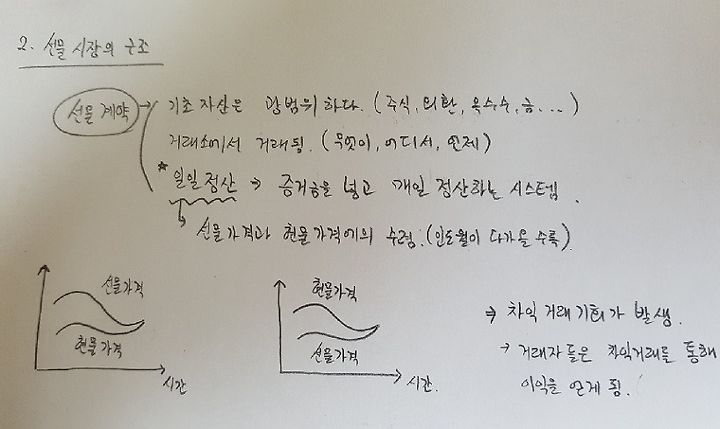 2. 선물 시장의 구조
선물 계약 → 기초 자산은 광범위하다. (주식, 외환, 옥수수, 금...)
거래소에서 거래됨. (무엇이, 어디서, 언제)
* 일일 정산 → 증거금을 넣고 매일 정산하는 시스템.
↳ 선물가격과 현물가격에의 수렴. (인도월이 다가올 수록)
선물가격
현물가격
시간
현물가격
선물가격
시간.
→ 차익 거래 기회가 발생.
→ 거래자들은 차익거래를 통해
이익을 얻게 됨.